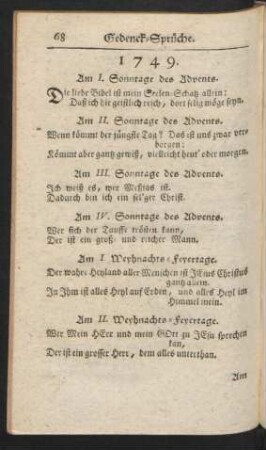 68 Gedenck-Sprüche.
1749.
Am I. Sonntage des Advents.
Die liebe Bibel ist mein Seelen-Schatz allein:
Daß ich hie geistlich reich, dort selig möge seyn.
Am II. Sonntage des Advents.
Wenn kömmt der jüngste Tag? Das ist uns zwar ver-
borgen:
Kömmt aber gantz gewiß, vielleicht heut' oder morgen.
Am III. Sonntage des Advents.
Ich weiß es, wer Meßias ist.
Dadurch bin ich ein sel'ger Christ.
Am IV. Sonntage des Advents.
Wer sich der Tauffe trösten kann,
Der ist ein groß- und reicher Mann.
Am I Weyhnachts-Feyertage.
Der wahre Heyland aller Menschen ist JEsus Christus
gantz allein.
In Ihm ist alles Heyl auf Erden, und alles Heyl im
Himmel mein.
Am II. Weyhnachts-Feyertage.
Wer Mein HErr und mein GOtt zu JEsu sprechen
kan,
Der ist ein grosser Herr, dem alles unterthan.
Am